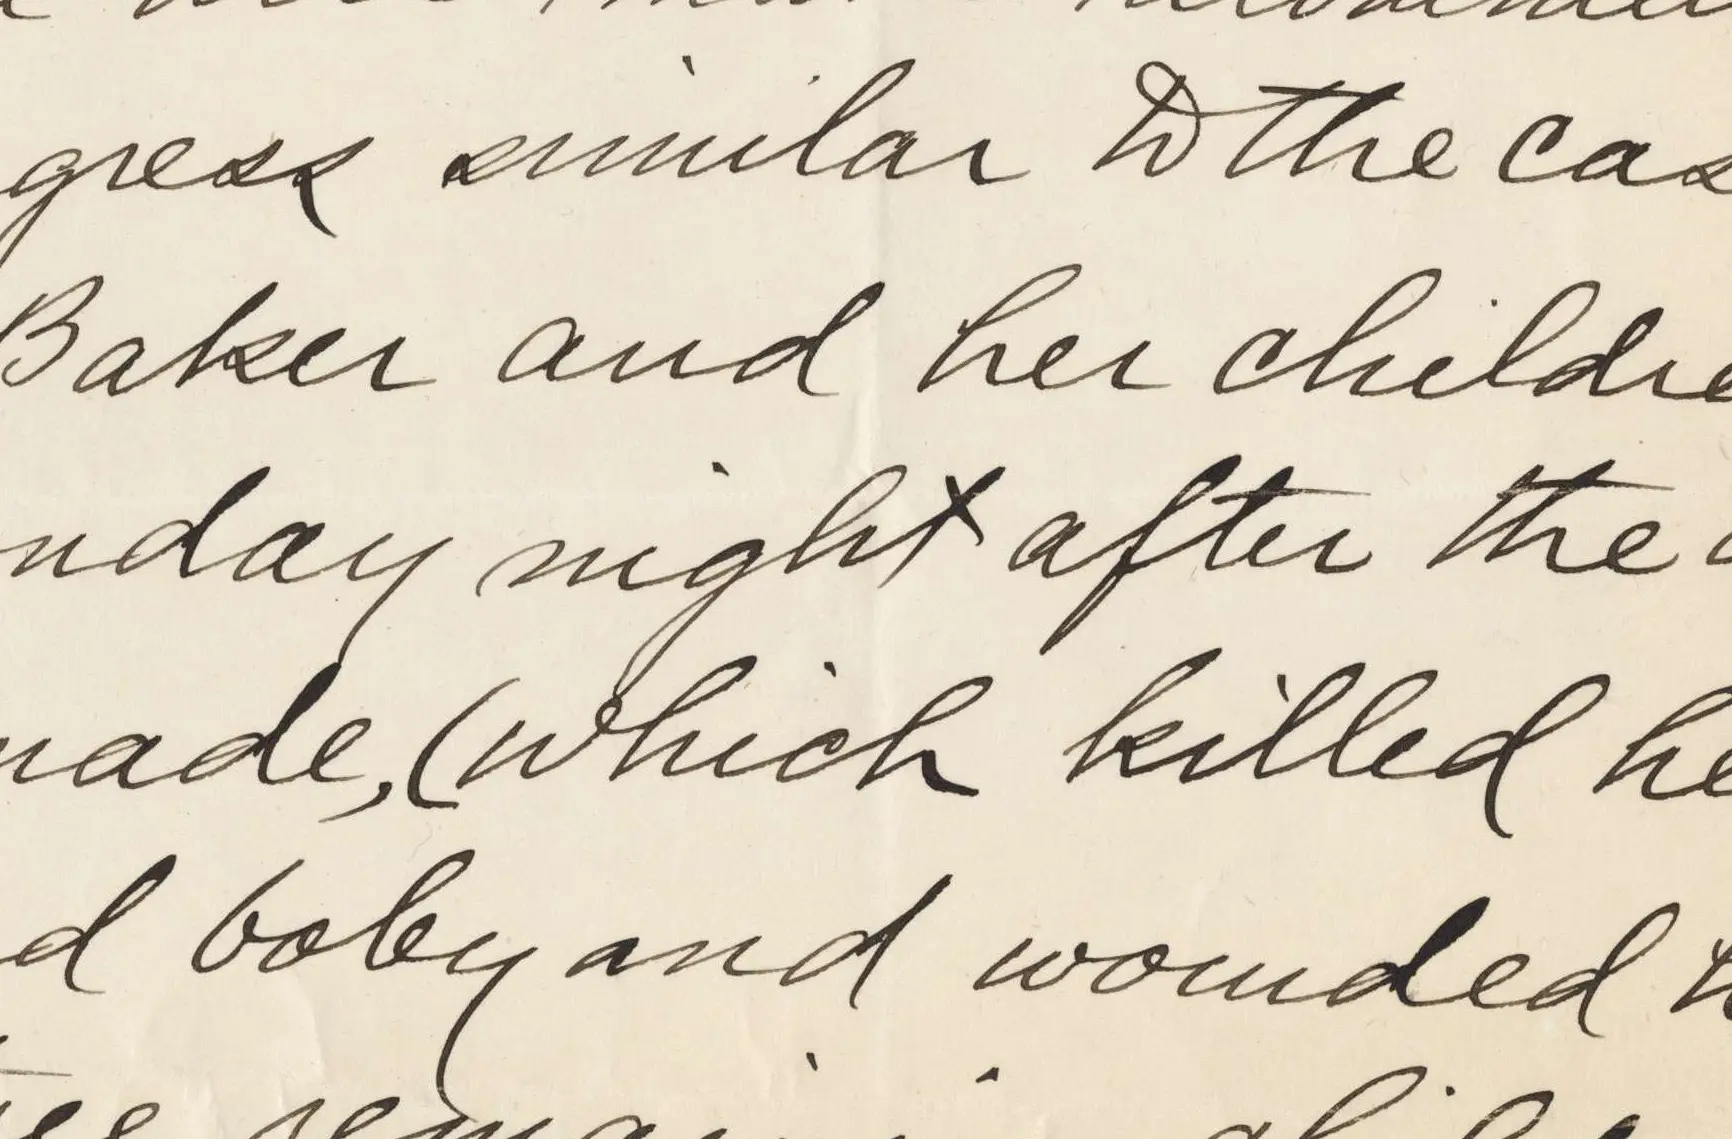 gress similar to the cas
Baker and her childre
nday night after the
made, (which killed he
d baby and wounded
remaini